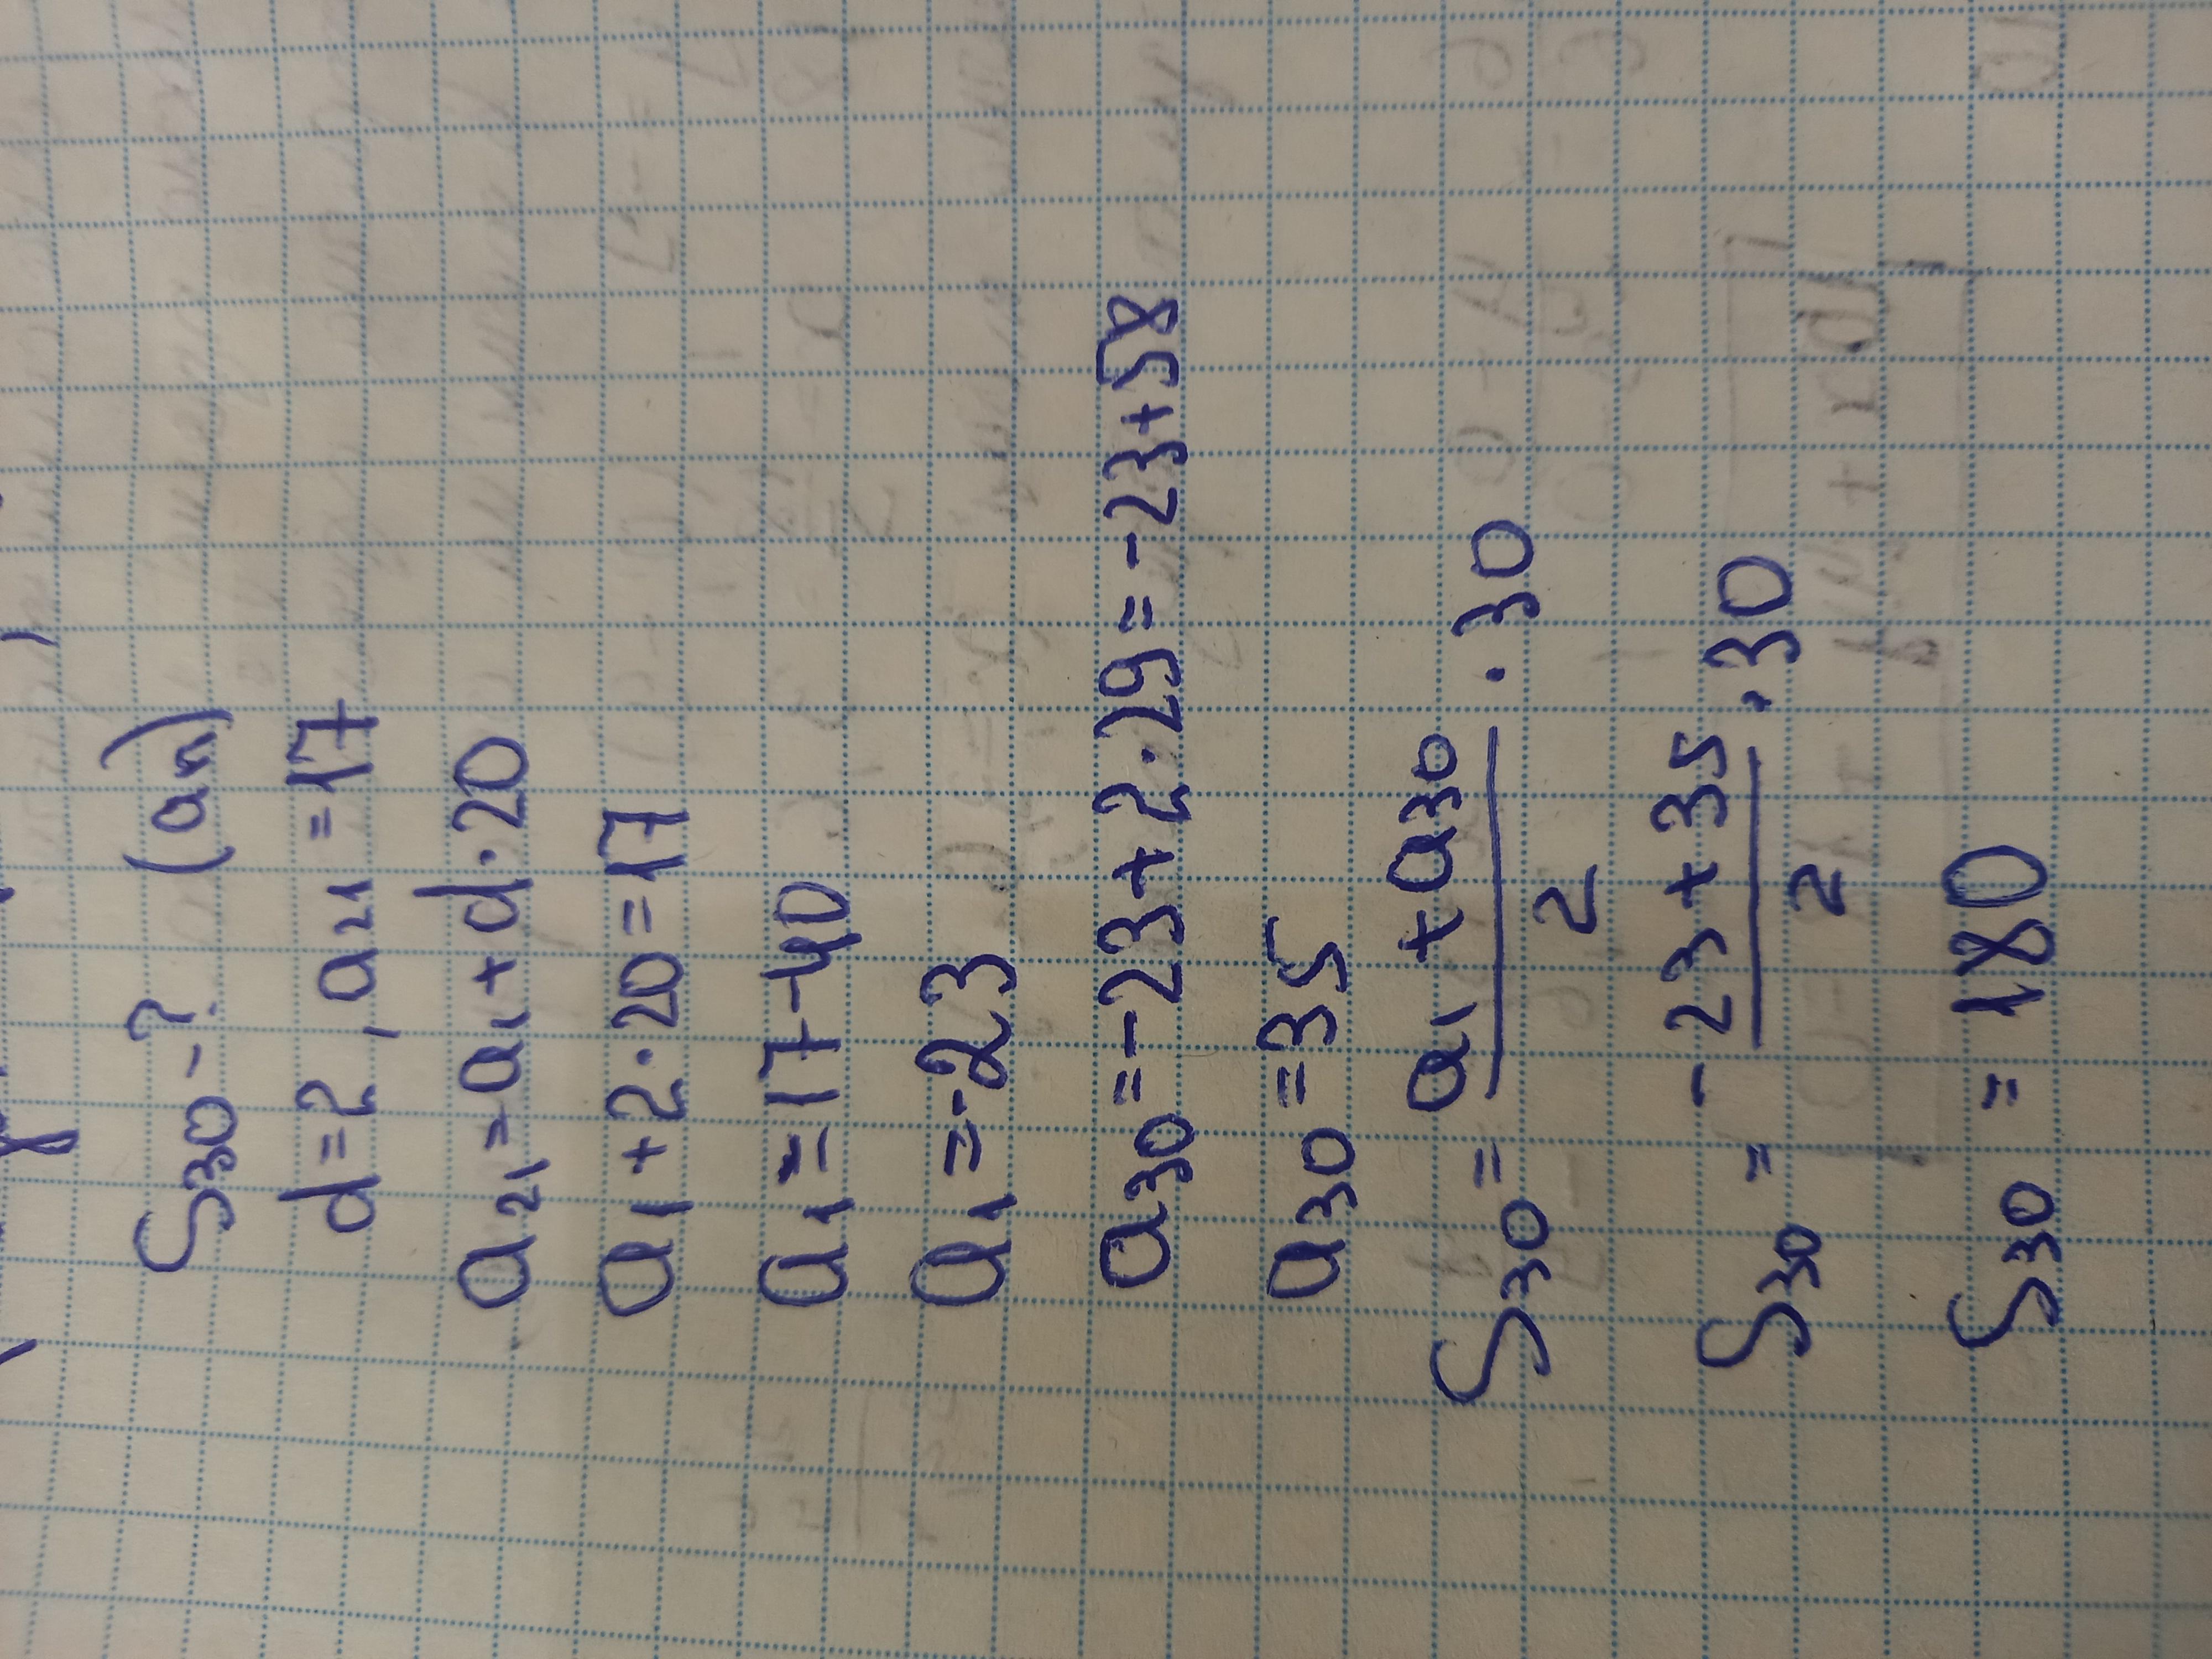 S₃₀ - ? (aₙ)
d = 2, a₂₁ = 17
a₂₁ = a₁ + d · 20
a₁ + 2 · 20 = 17
a₁ = 17 - 40
a₁ = -23
a₃₀ = -23 + 2 · 29 = -23 + 58
a₃₀ = 35
S₃₀ = (a₁ + a₃₀)/2 · 30
S₃₀ = (-23 + 35)/2 · 30
S₃₀ = 180